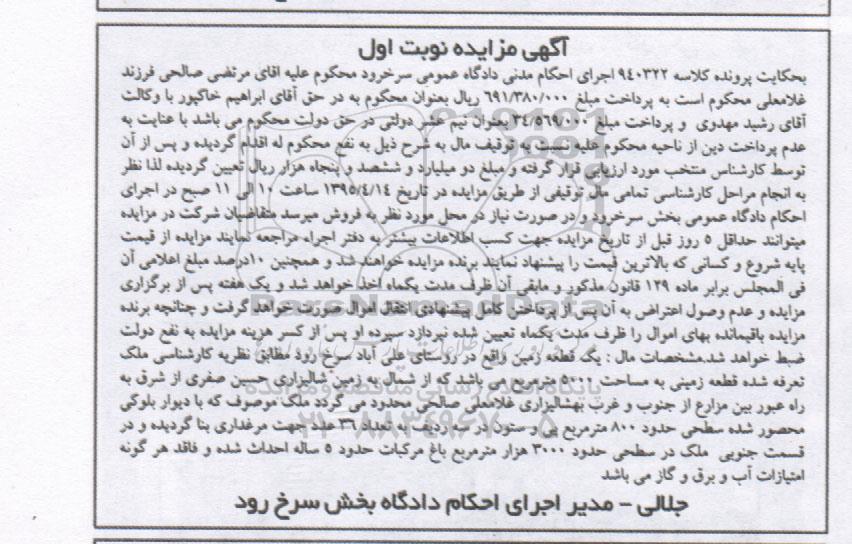 آگهی مزایده نوبت اول
بحکایت پرونده کلاسه ۹۴۰۳۲۲ اجرای احکام مدنی دادگاه عمومی سرخرود محکوم علیه اقای مرتضی صالحی فرزند
غلامعلی محکوم است به پرداخت مبلغ ۶۹۱/۳۸۰/۰۰۰ ریال بعنوان محکوم به در حق آقای ابراهیم خاکپور با وکالت
آقای رشید مهدوی و پرداخت مبلغ ۳۴/۵۶۹/۰۰۰ بعنوان نیم عشر دولتی در حق دولت محکوم می باشد با عنایت به
عدم پرداخت دین از ناحیه محکوم علیه نسبت به توقیف مال به شرح ذیل به نفع محکوم له اقدام گردیده و پس از آن
توسط کارشناس منتخب مورد ارزیابی قرار گرفته و مبلغ دو میلیارد و ششصد و پنجاه هزار ریال تعیین گردیده لذا نظر
به انجام مراحل کارشناسی تمامی مال توقیفی از طریق مزایده در تاریخ ۱۳۹۵/۴/۱۴ ساعت ۱۰ الی ۱۱ صبح در اجرای
احکام دادگاه عمومی بخش سرخرود و در صورت نیاز در محل مورد نظر به فروش میرسد متقاضیان شرکت در مزایده
میتوانند حداقل ۵ روز قبل از تاریخ مزایده جهت کسب اطلاعات بیشتر به دفتر اجراء مراجعه نمایند مزایده از قیمت
پایه شروع و کسانی که بالاترین قیمت را پیشنهاد نمایند برنده مزایده خواهند شد و همچنین ۱۰درصد مبلغ اعلامی آن
فی المجلس برابر ماده ۱۲۹ قانون مذکور و مابقی آن ظرف مدت یکماه اخذ خواهد شد و یک هفته پس از برگزاری
مزایده و عدم وصول اعتراض به آن پس از پرداختن کامل پیشنهادی انتقال اموال صورت خواهد گرفت و چنانچه برنده
مزایده باقیمانده بهای اموال را ظرف مدت یکماه تعیین شده نپردازد سپرده او پس از کسر هزینه مزایده به نفع دولت
ضبط خواهد شد.مشخصات مال : یک قطعه زمین واقع در روستای علی آباد سرخ رود مطابق نظریه کارشناسی ملک
تعرفه شده قطعه زمینی به مساحت ۵۰۰۰ مترمربع می باشد که از شمال به زمین شالیزاری حسین صفری از شرق به
راه عبور بین مزارع از جنوب و غرب بهشالیزاری غلامعلی صالحی محدود می گردد ملک موصوف که با دیوار بلوکی
محصور شده سطحی حدود ۸۰۰ مترمربع پی و ستون در سه ردیف به تعداد ۳۶ عدد جهت مرغداری بنا گردیده و در
قسمت جنوبی ملک در سطحی حدود ۳۰۰۰ هزار مترمربع باغ مرکبات حدود ۵ ساله احداث شده و فاقد هر گونه
امتیازات آب و برق و گاز می باشد
جلالی - مدیر اجرای احکام دادگاه بخش سرخ رود
ParsNamadData